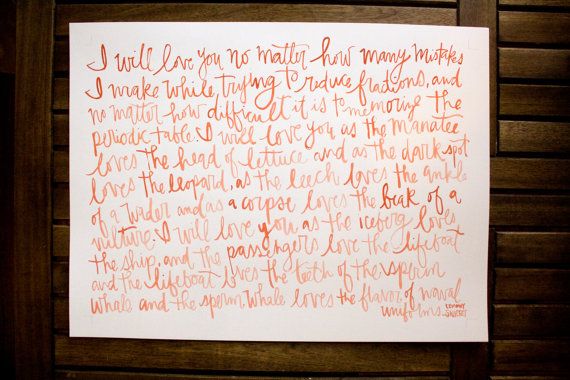 I will love you no matter how many mistakes
I make while trying to reduce fractions, and
no matter how difficult it is to memorize the
periodic table. I will love you as the manatee
loves the head of lettuce and as the dark spot
loves the leopard, as the leech loves the ankle
of a wader and as a corpse loves the beak of a
vulture. I will love you as the iceberg loves
the ship, and the passengers love the lifeboat
and the lifeboat loves the teeth of the sperm
whale and the sperm whale loves the flavor of naval
uniforms. LEMONY
SNICKET